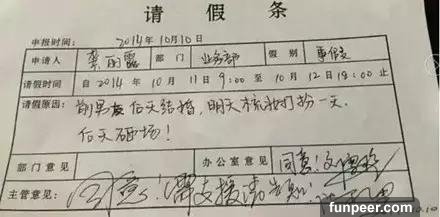 请假条
申报时间: 2014年10月10日
申请人 龚丽露 部门 业务部 假别 事假
请假时间 自2014年10月11日9:00至10月12日18:00止
请假原因: 前男友后天结婚,明天梳妆打扮一天,
后天砸场!
部门意见 办公室意见 同意!
主管意见: 同意!需支援请告知!
funpeer.com